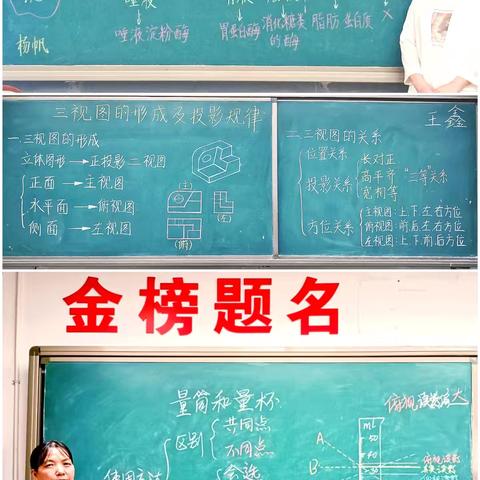 唾液淀粉酶
胃蛋白酶
消化糖类
的酶
脂肪
蛋白质
杨帆
三视图的形成及投影规律
一.三视图的形成
立体图形→正投影 三视图
正面→主视图
水平面→俯视图
侧面→左视图
(主)
(左)
(俯)
王鑫
二.三视图的关系
位置关系
投影关系
长对正
高平齐 "三等"关系
宽相等
方位关系
主视图:上下左右方位
俯视图:前后左右方位
左视图:上下前后方位
金榜题名
量筒和量杯
区别
共同点
不同点
使用方法
会选
A
B
mL
50
40
30
俯视读数偏大
俯视读数